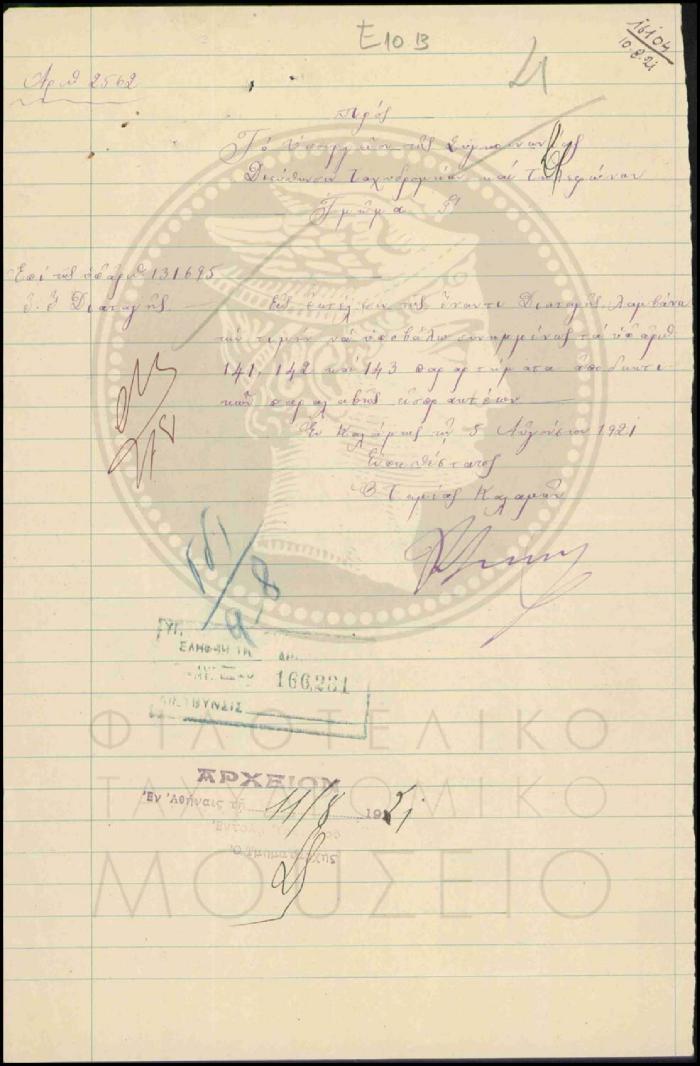 Ε10Β
16104
10.8.21
21
Ἀριθ 2562
Πρός
Τὸ Ὑπουργεῖον τῆς Συγκοινωνίας
Διεύθυνσιν Ταχυδρομικῶν καὶ Τηλεφώνων
Τμῆμα
Ἐπὶ τῆς ὑπ' ἀριθ 131695
Διαταγῆς.
Εἰς ἐκτέλεσιν τῆς ἔναντι Διαταγῆς λαμβάνω
τὴν τιμὴν νὰ ὑποβάλω συνημμένως τὰ ὑπ' ἀριθ
141, 142 καὶ 143 παραρτήματα ἀποδεικτι
κῶν παραλαβῆς εἰσπρακτέων
Ἐν Καλάμαις τῇ 5 Αὐγούστου 1921
Εὐπειθέστατος
Ὁ Ταμίας Καλαμῶν
9-8
ΕΛΗΦΘΗ ΤΗ
166,281
ΔΙΕΥΘΥΝΣΙΣ
ΑΡΧΕΙΟΝ
Ἐν Ἀθήναις τῇ 11/8 1921
ΦΙΛΟΤΕΛΙΚΟ
ΤΑΧΥΔΡΟΜΙΚΟ
ΜΟΥΣΕΙΟ